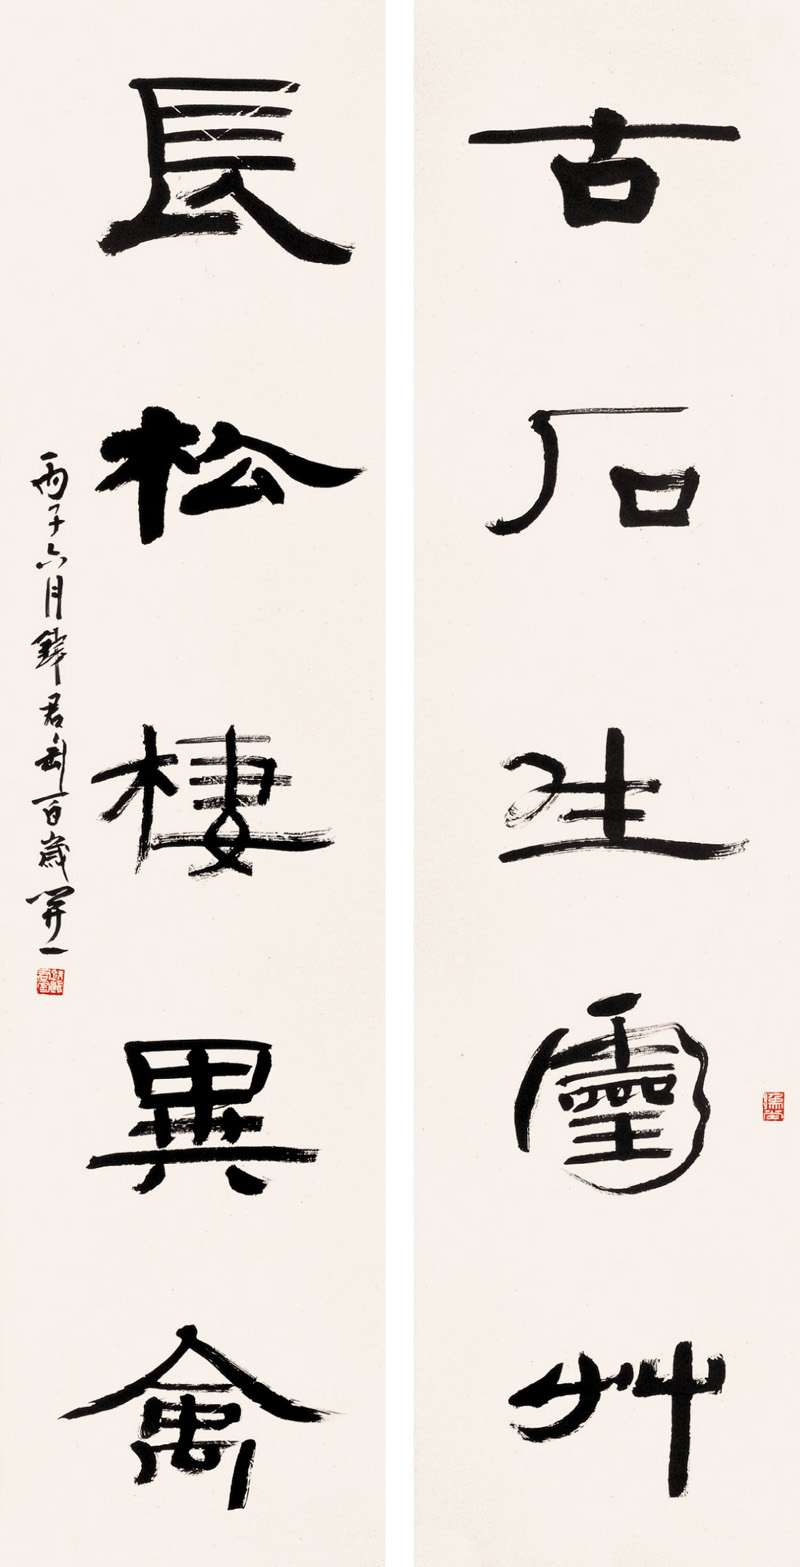 古石生靈艸
長松棲異禽
丙子六月錢君匋百歲開一